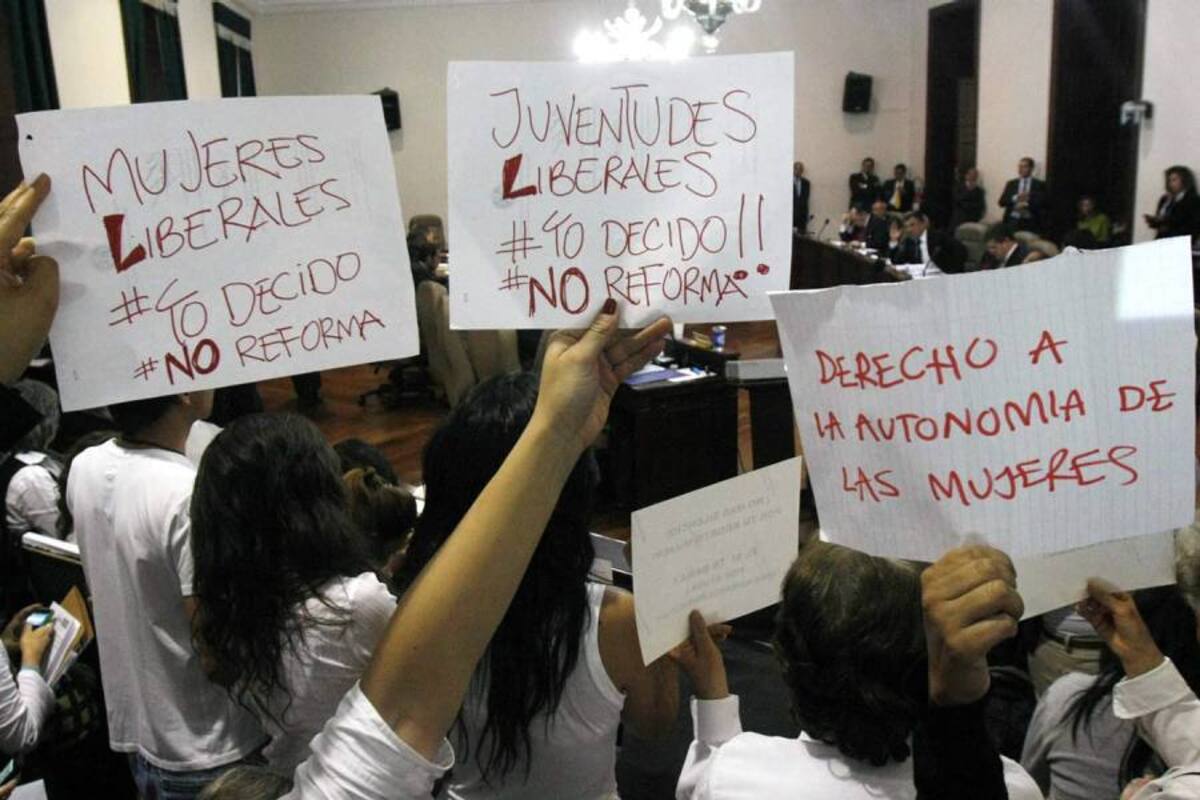 MUJERES
LIBERALES
#YO DECIDO
#NO REFORMA
JUVENTUDES
LIBERALES
#YO DECIDO!!
#NO REFORMA!!
DERECHO A
LA AUTONOMIA DE
LAS MUJERES